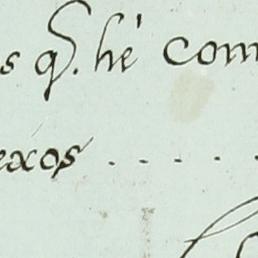 s q. hé com
exos . . . . .